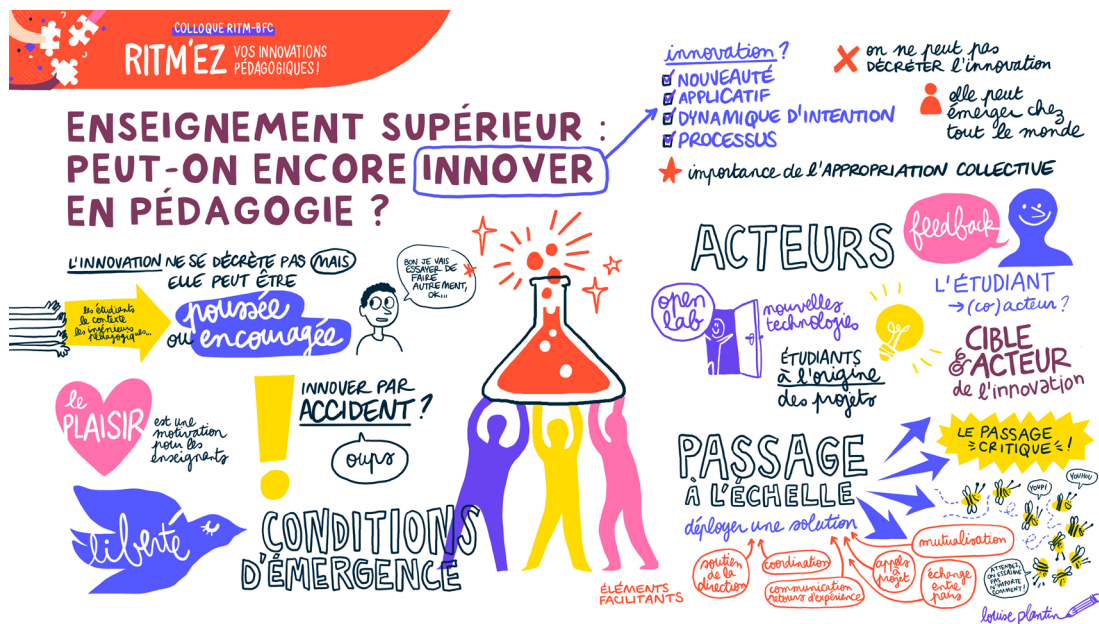 COLLOQUE RITM-BFC
RITM'EZ
VOS INNOVATIONS
PÉDAGOGIQUES !
ENSEIGNEMENT SUPÉRIEUR :
PEUT-ON ENCORE INNOVER
EN PÉDAGOGIE ?
innovation ?
NOUVEAUTÉ
APPLICATIF
DYNAMIQUE D'INTENTION
PROCESSUS
on ne peut pas
DÉCRÉTER l'innovation
elle peut
émerger chez
tout le monde
importance de l'APPROPRIATION COLLECTIVE
L'INNOVATION NE SE DÉCRÈTE PAS MAIS
ELLE PEUT ÊTRE
poussée
ou encouragée
les étudiants
le contexte
les ingénieurs
pédagogiques...
BON JE VAIS
ESSAYER DE
FAIRE
AUTREMENT,
OK...
le
PLAISIR
est une
motivation
pour les
enseignants
INNOVER PAR
ACCIDENT ?
oups
liberté
CONDITIONS
D'ÉMERGENCE
ACTEURS
feedback
L'ÉTUDIANT
→ (co)acteur ?
CIBLE
& ACTEUR
de l'innovation
open
lab
nouvelles
technologies
ÉTUDIANTS
à l'origine
des projets
PASSAGE
À L'ÉCHELLE
déployer une solution
LE PASSAGE
CRITIQUE !
YOUPI
YOUHOU
ATTENDEZ,
ON ESSAIME
PAS
N'IMPORTE
COMMENT !
ÉLÉMENTS
FACILITANTS
soutien
de la
direction
coordination
communication
retours d'expérience
appels
à
projet
mutualisation
échange
entre
pairs
louise plantin